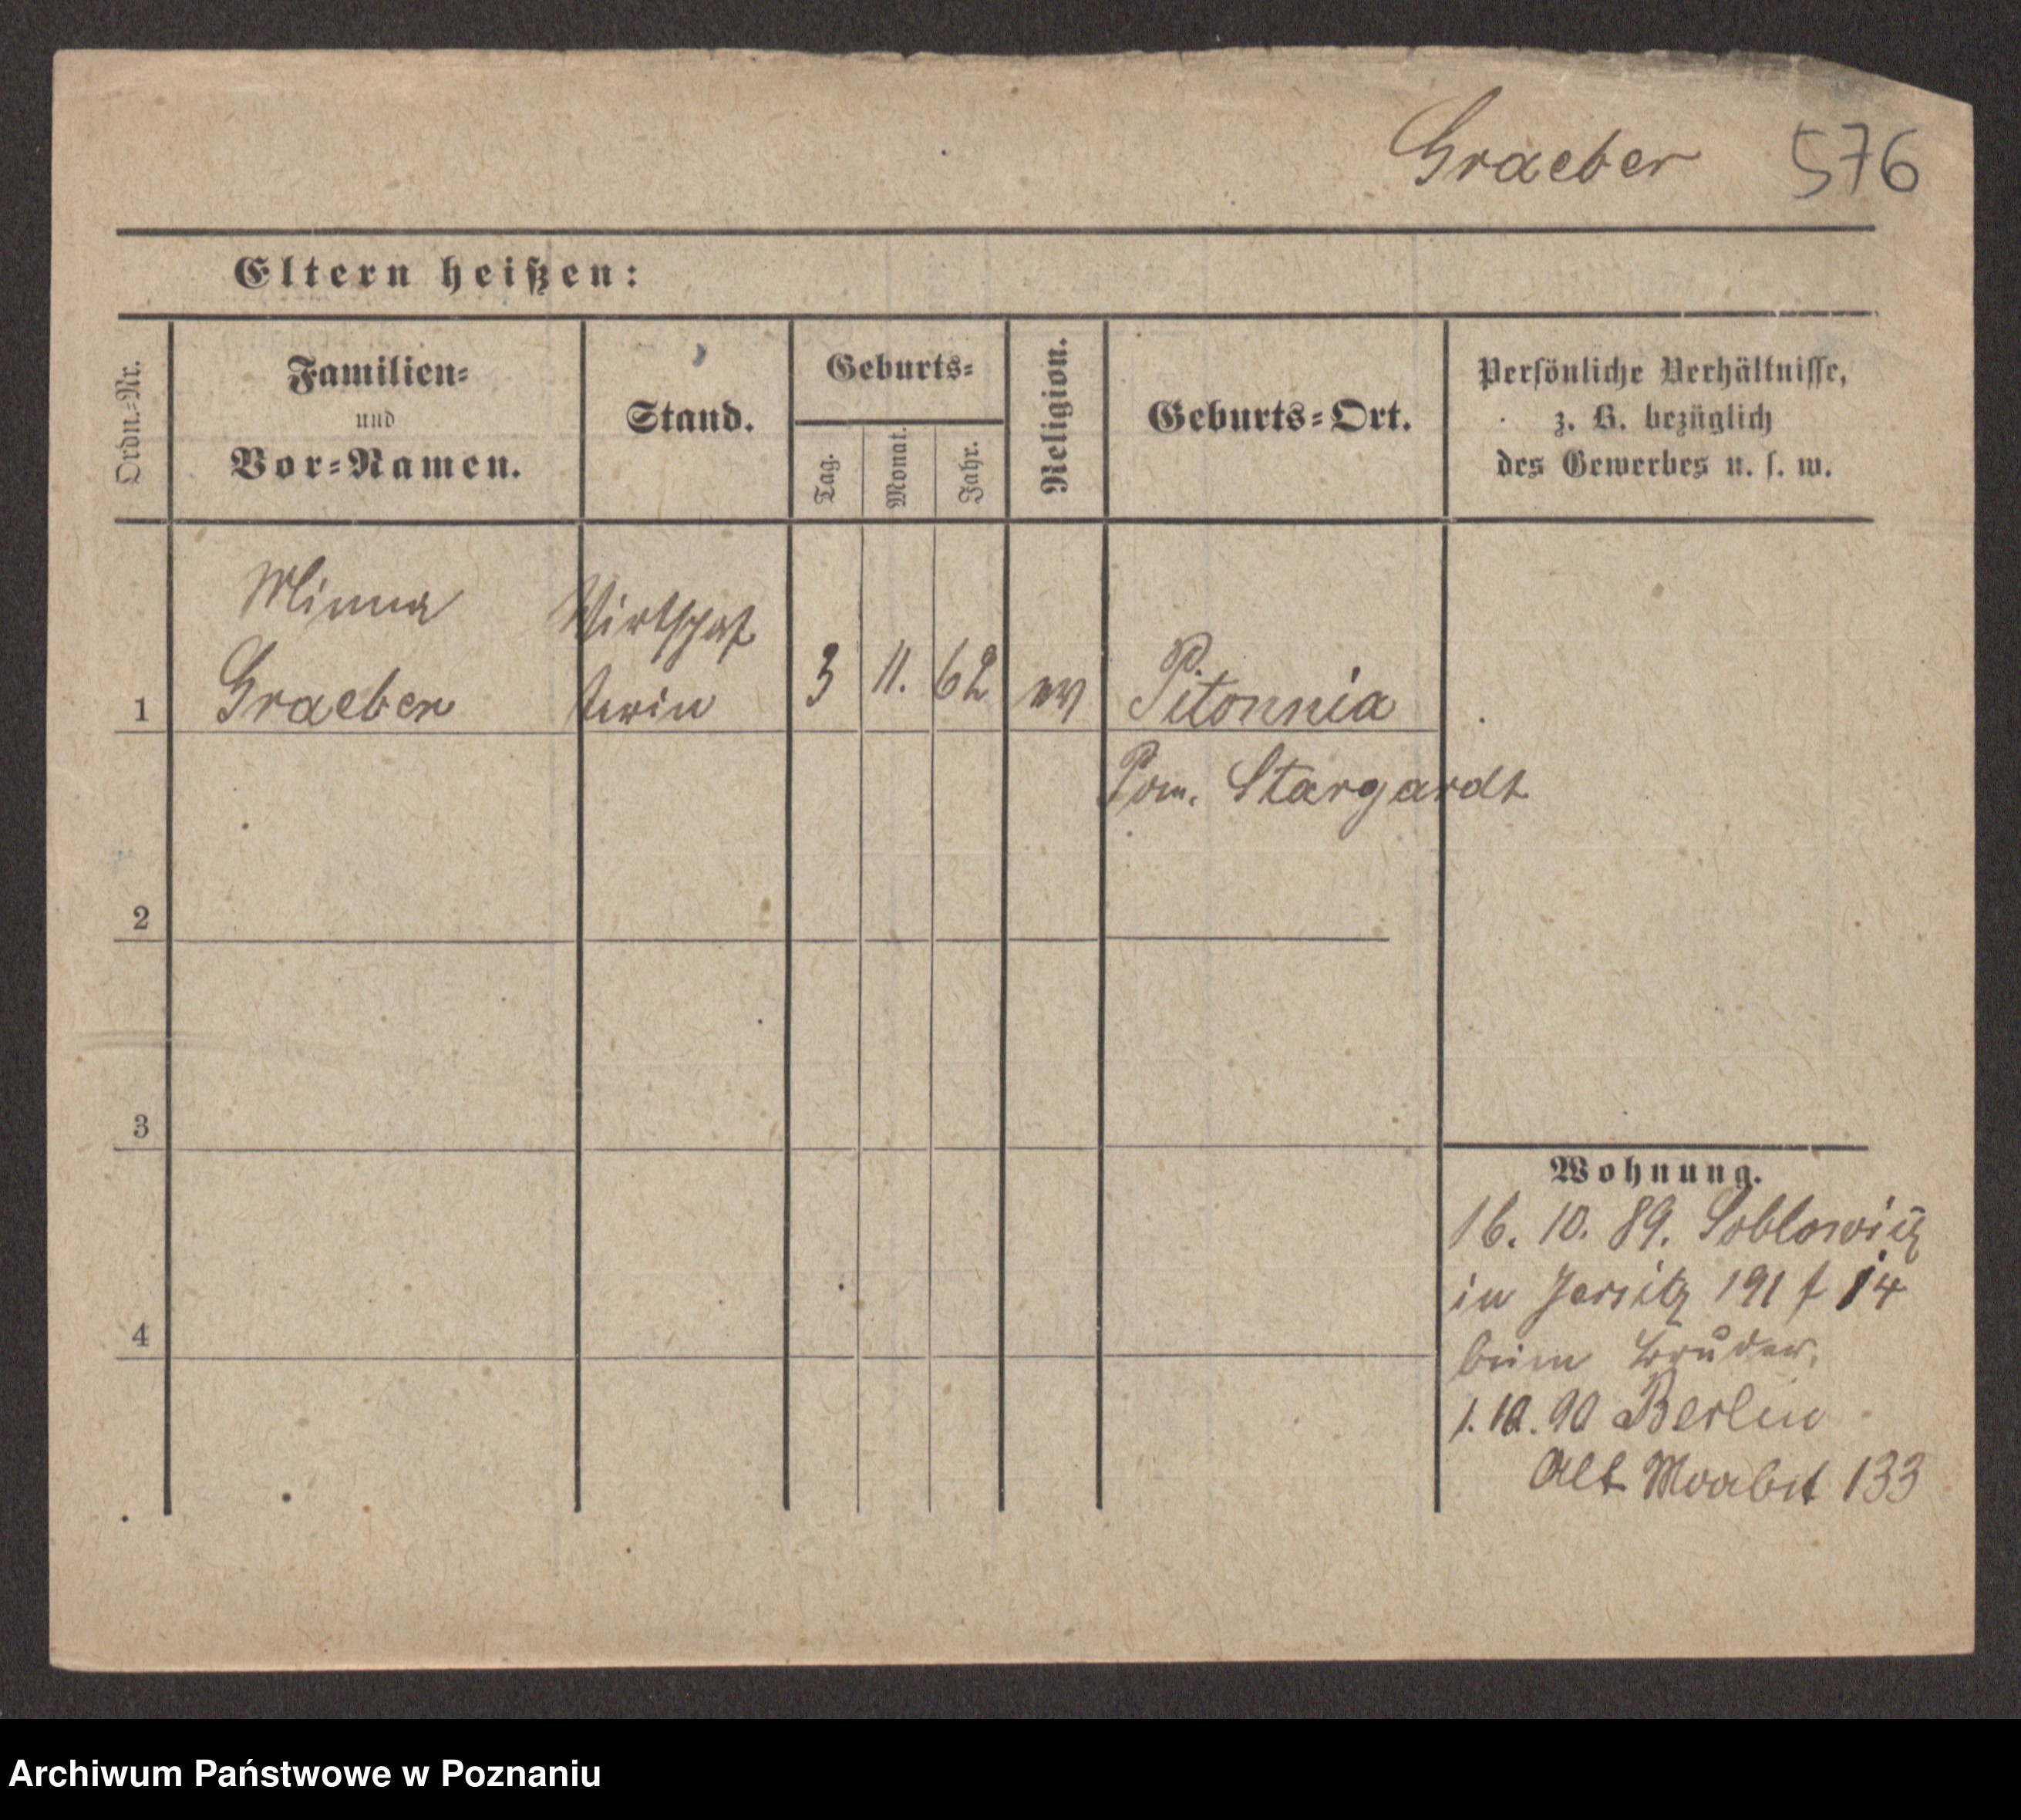 Graeber 576
Eltern heißen:
Ordn.-Nr.
Familien-
und
Vor-Namen.
Stand.
Geburts-
Tag.
Monat.
Jahr.
Religion.
Geburts-Ort.
Persönliche Verhältnisse,
z. B. bezüglich
des Gewerbes u. s. w.
Minna
Graeber
Wirtschaf
terin
1
3 11. 62 ev Pitonnia
Pom. Stargardt
2
3
4
Wohnung.
16. 10. 89.
in Jersitz 191 f 14
beim Bruder.
1. 10. 90 Berlin
Alt Moabit 133
Archiwum Państwowe w Poznaniu